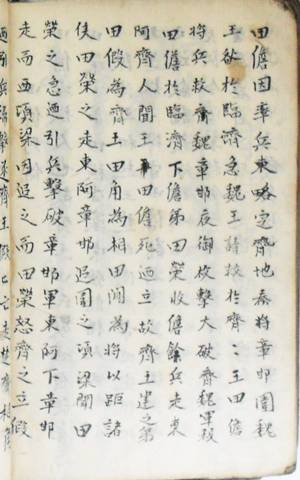 田儋因率兵東略定齊地秦將章邯圍魏
王欲於臨濟急魏王請救於齊〻王田儋
將兵救齊魏章邯夜御枚擊大破齊魏軍殺
田儋於臨濟下儋弟田榮收儋餘兵走東
阿齊人間王田儋死迺立故齊王建之弟
田假為齊王田角為相田閒為將以距諸
侯田榮之走東阿章邯追圍之項梁聞田
榮之急迺引兵擊破章邯軍東阿下章邯
走而西項梁因追之而田榮怒齊之立假
迺引兵歸擊逐齊王假〻亡走楚齊相角